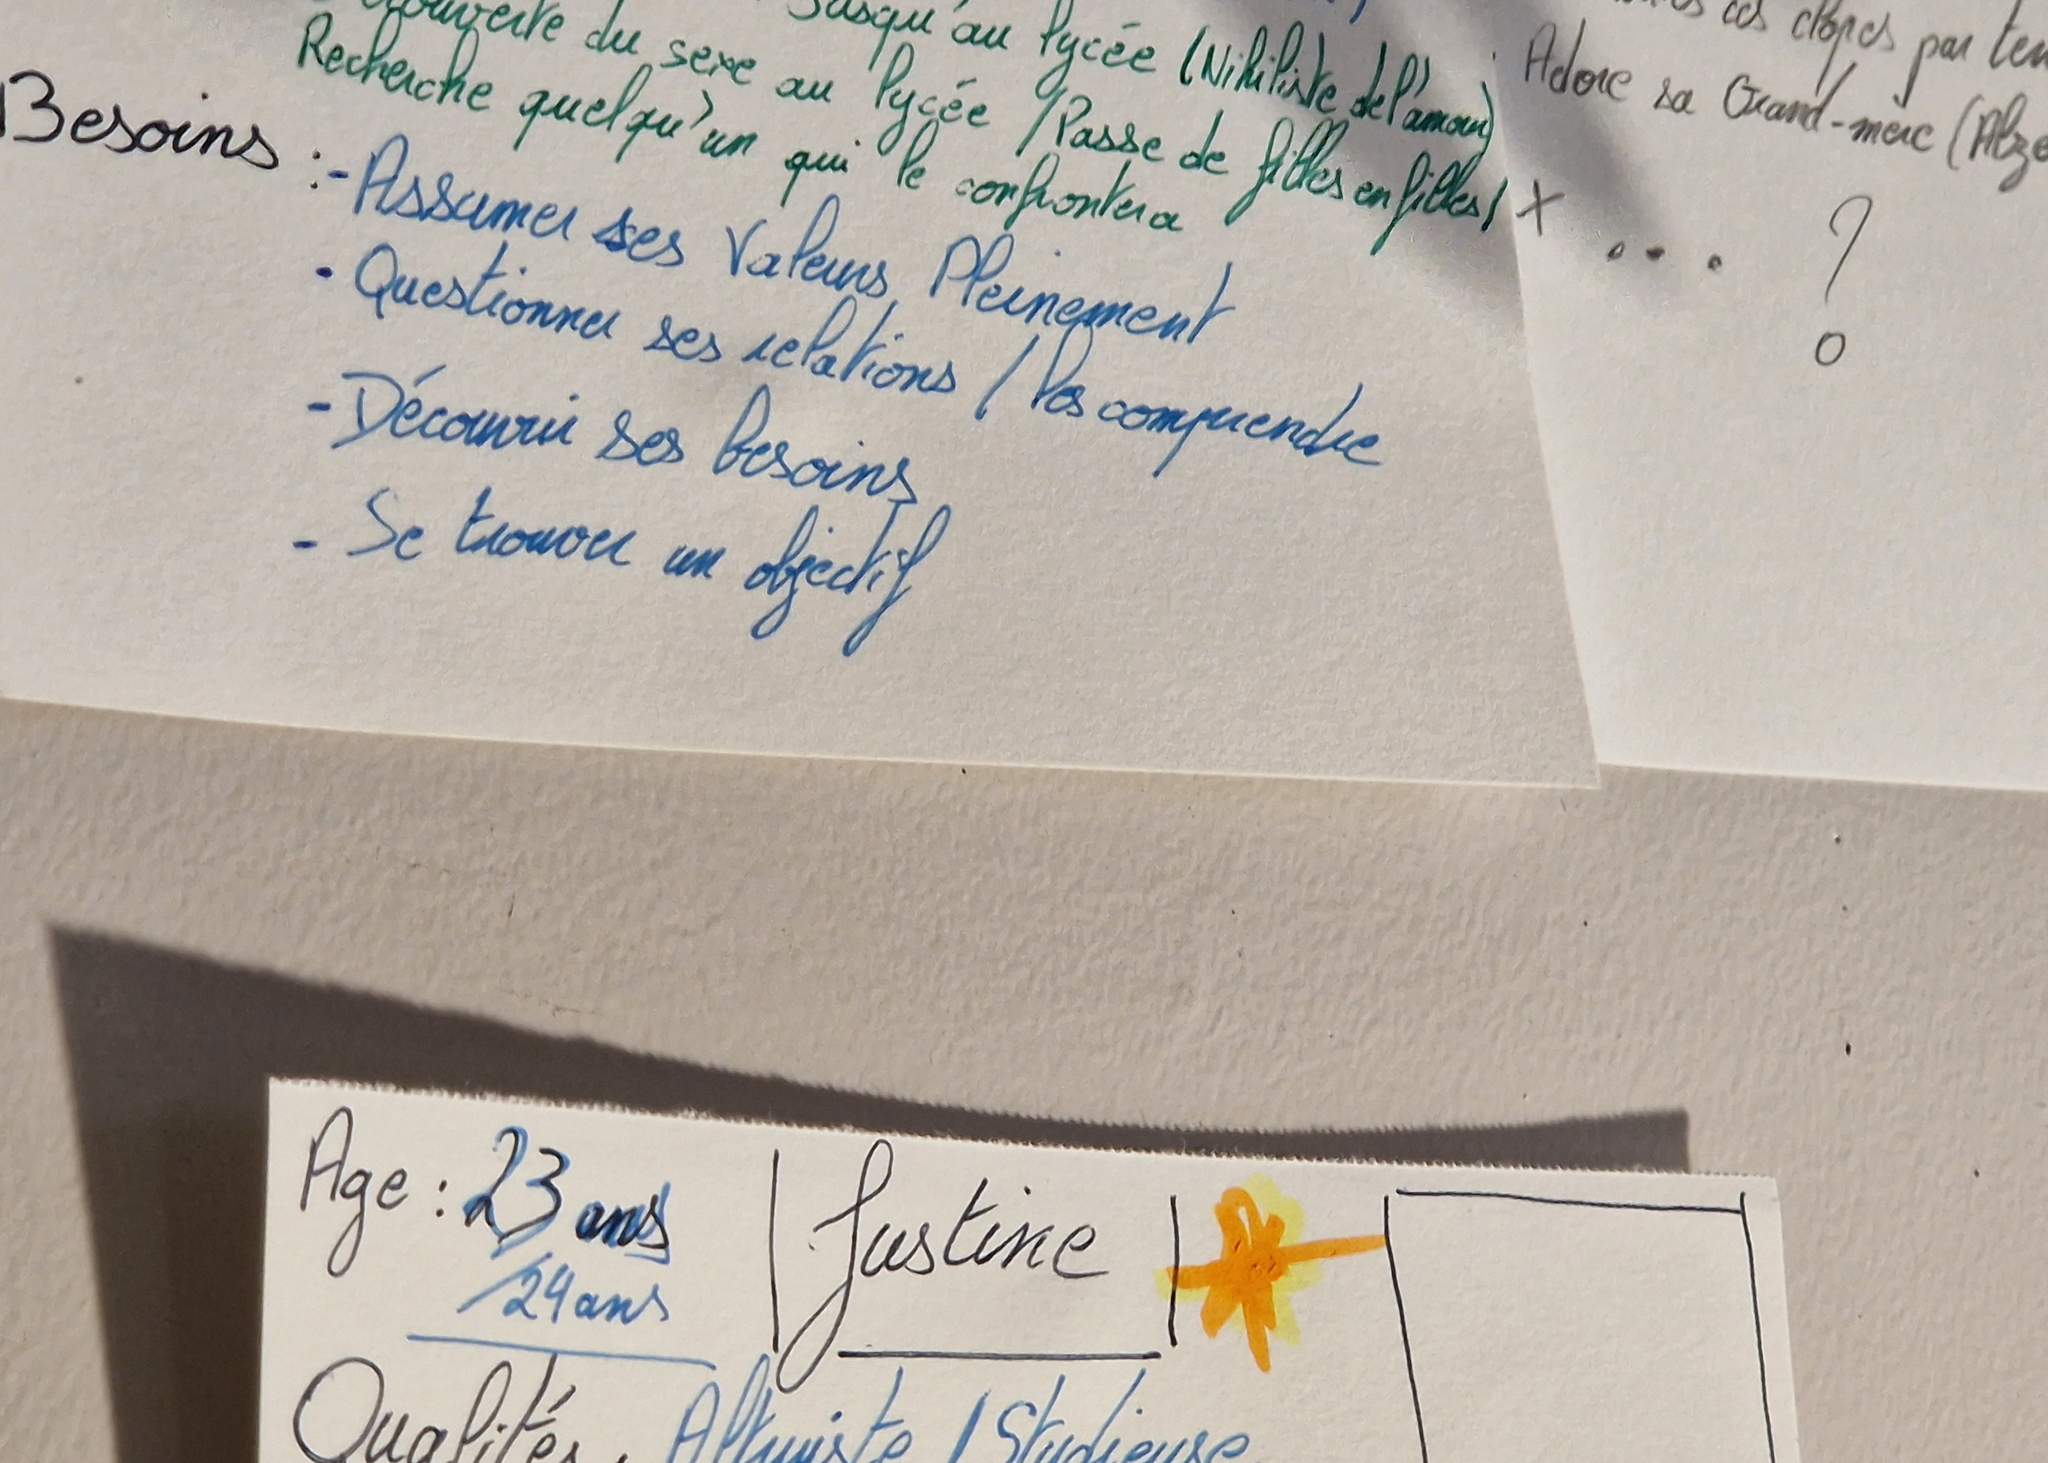 Jusqu'au lycée (Nihiliste de l'amour)
du sexe au lycée / Passe de filles en filles /
Recherche quelqu'un qui le confrontera
Besoins :
- Assumer ses Valeurs Pleinement
- Questionner ses relations / les comprendre
- Découvrir ses besoins
- Se trouver un objectif
par
Adore sa Grand-mère
+ ... ?
Age : 23 ans
/24 ans
Justine
Qualités : Altruiste / Studieuse